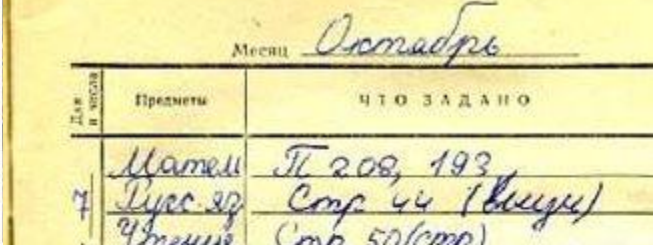 Месяц Октябрь
Дни и числа Предметы ЧТО ЗАДАНО
Матем П 208, 193,
7 Русс. яз Стр 44 (внизу)
Чтение Стр 50 (стр)